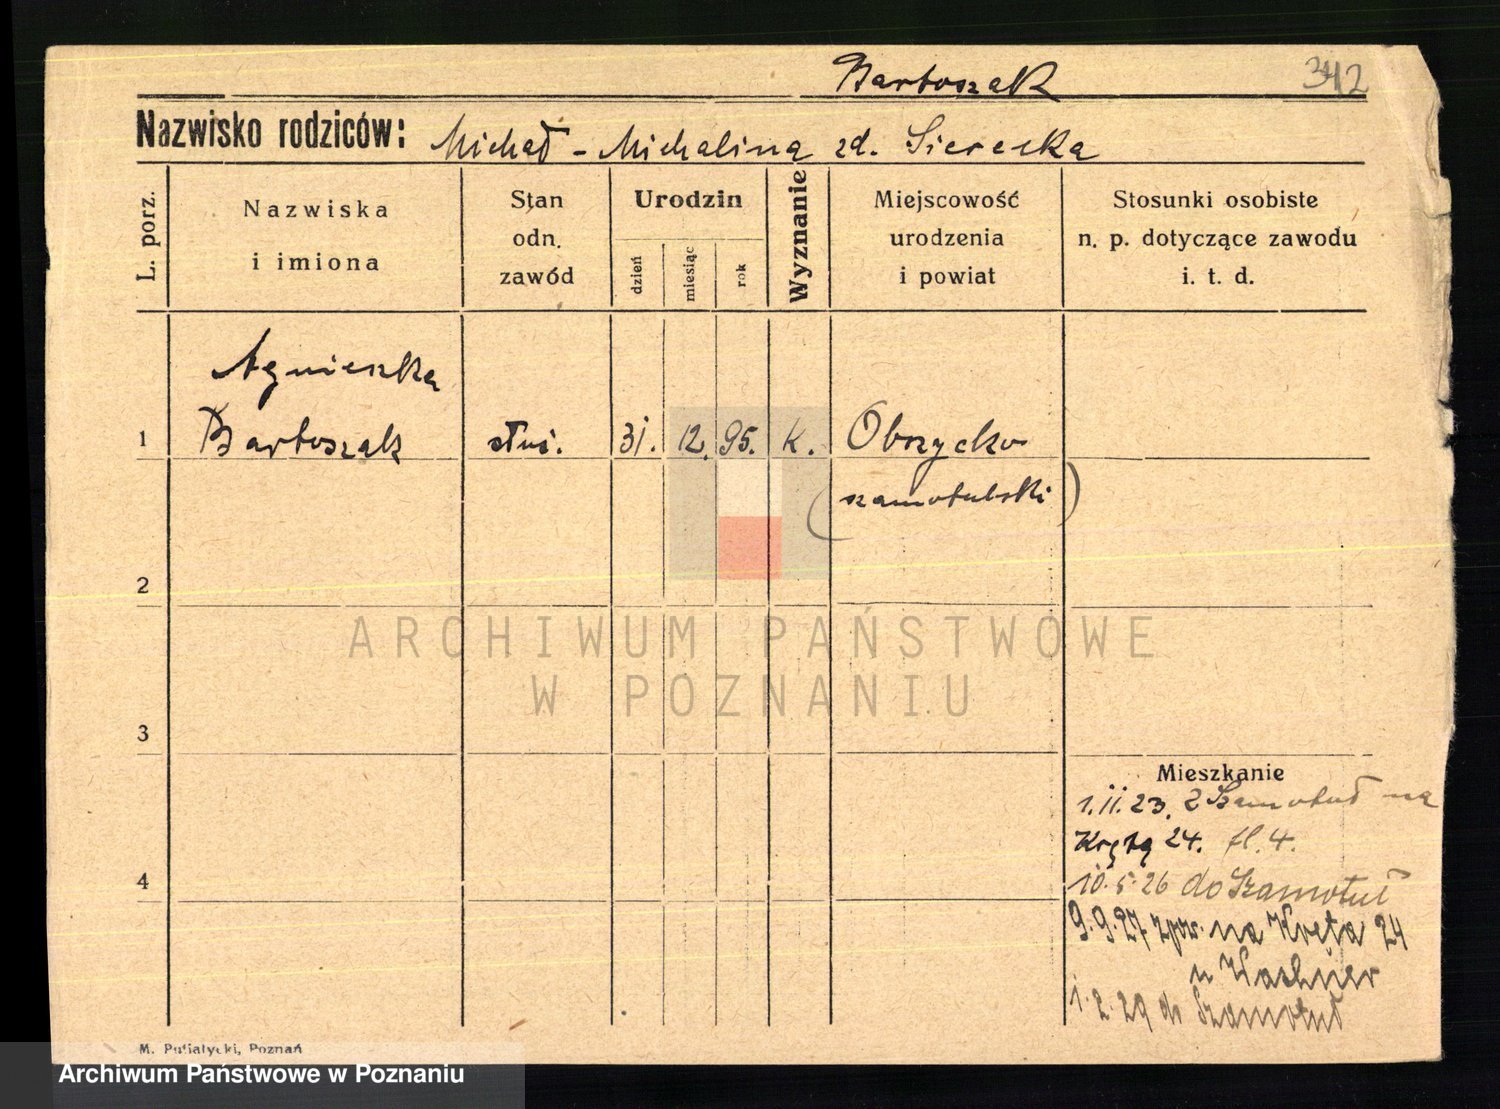 Bartoszak
342
Nazwisko rodziców: Michał - Michalina zd. Sierecka
L. porz.
Nazwiska
i imiona
Stan
odn.
zawód
Urodzin
dzień
miesiąc
rok
Wyznanie
Miejscowość
urodzenia
i powiat
Stosunki osobiste
n. p. dotyczące zawodu
i. t. d.
Agnieszka
1 Bartoszak służ. 31. 12. 95. K. Obrzycko
(szamotulski)
2
ARCHIWUM PAŃSTWOWE
W POZNANIU
3
Mieszkanie
1.11.23. z Szamotuł na
Krętą 24. fl. 4.
4
10.5.26 do Szamotuł
9.9.27 na Kręta 24
u
1.2.29 do Szamotuł
M. Putiatycki, Poznań
Archiwum Państwowe w Poznaniu